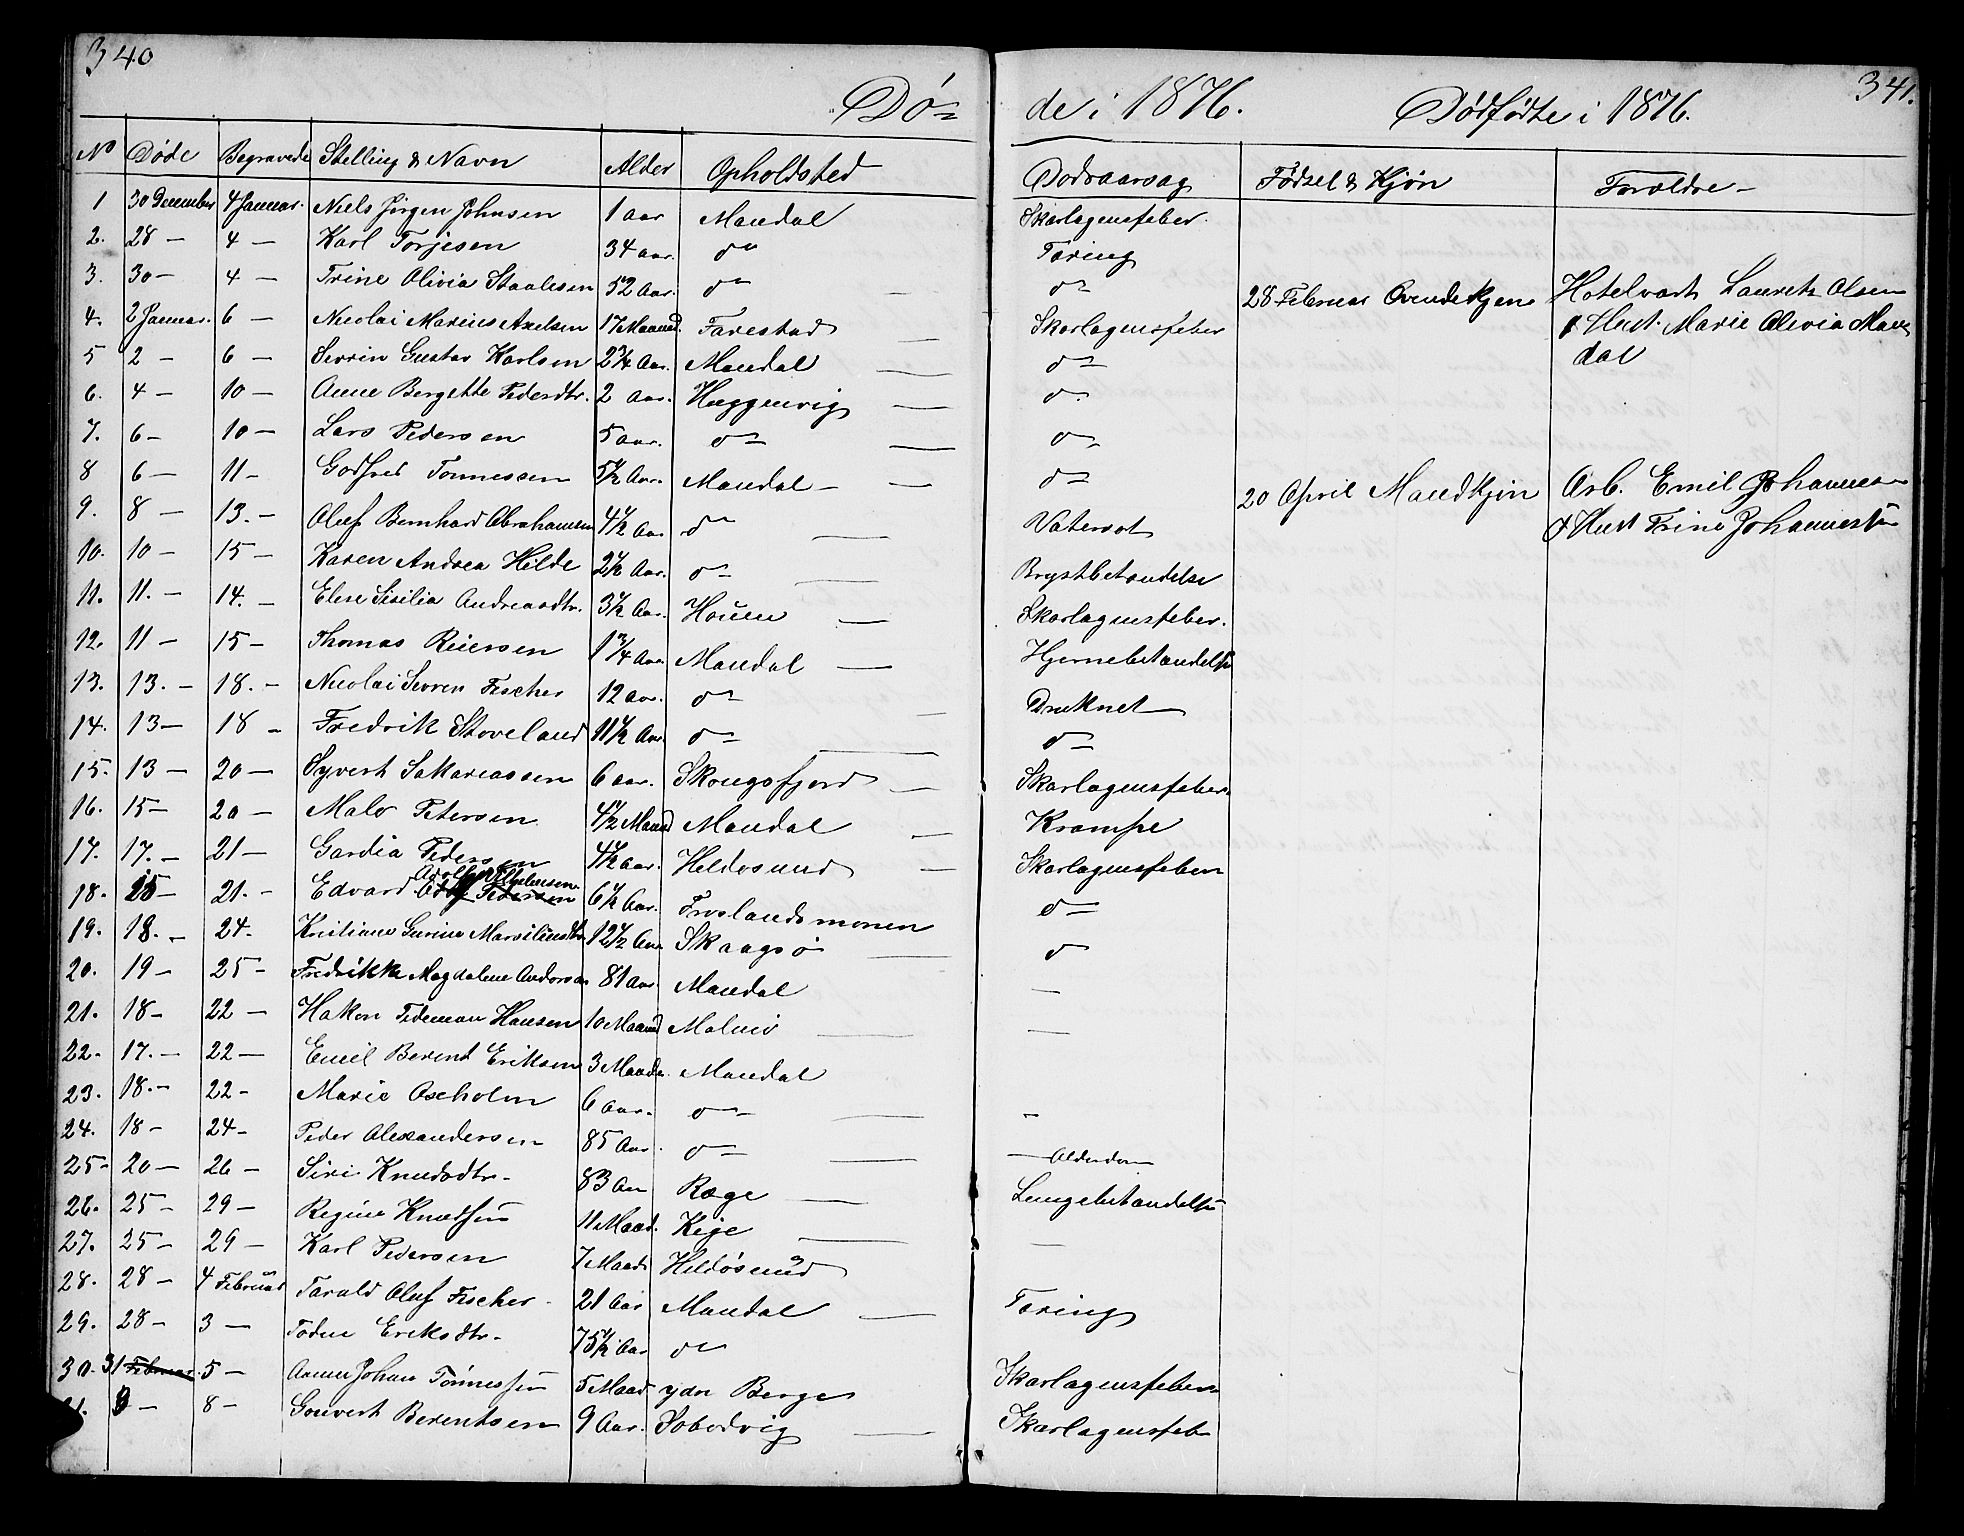 340
341.
Dø= de i 1876. Dødfødte i 1876.
No Døde Begravede Stelling & Navn Alder Opholdsted Dødsaarsag Fødsel & Kjøn Forældre -
1 30 December 4 Januar. Niels Jørgen Johnsen 1 Aar Mandal Skarlagensfeber.
2. 28 - 4 - Karl Torjesen 34 Aar. do Tæring
3. 30 - 4 - Trine Olivia Staalesen 52 Aar. do - do 28 Februar Qvindekjøn Hotelvært Lauretz Olsen
4. 2 Januar. 6 - Nicolai Marius Axelsen 17 Maaned. Farestad - Skarlagensfeber & Hust. Marie Olivia Man=
5 2 - 6 - Serrin Gustav Karlsen 2 3/4 Aar. Mandal - do dal
6. 4 - 10 - Anne Bergitte Pedersdtr. 2 Aar. Hæggenvig - do
7. 6 - 10 - Lars Pedersen 5 Aar. do - do
8 6 - 11 - Godfred Tønnessen 5 1/2 Aar. Mandal - do 20 April Mandkjøn Arb. Emil Johannes-
9. 8 - 13. - Oluf Bernhard Abrahamsen 4 1/2 Aar do - Vatersot & Hust Trine Johannessen
10. 10 - 15 - Karen Andrea Hilde 2 1/2 Aar. do - Brystbetændelse
11. 11. - 14. - Elen Sisilia Andreasdtr. 3 1/2 Aar. Houen - Skarlagensfeber.
12. 11 - 15 - Thomas Reiersen 1 3/4 Aar Mandal - Hjernebetændelse
13. 13. - 18. - Nicolai Serren Fischer 12 Aar. do - Druknet
14. 13 - 18 - Fredrik Stoveland 11 1/2 Aar. do - do
15. 13 - 20 - Syvert Sakariassen 6 Aar. Skougsfjord - Skarlagensfeber.
16. 15 - 20 - Malv Petersen 4 1/2 Maaned Mandal - Krampe
17. 17. - 21 - Gardia Pedersen 4 1/2 Aar. Heldøsund - Skarlagensfeber
Adolf
18. 15 - 21. - Edvard Pedersen 6 1/2 Aar. Frøslandsmonen do
19. 18. - 24. Kristiane Gurine Marsiliusdtr 12 1/2 Aar Skaagsø - do
20. 19 - 25 - Fredrikke Magdalene Andersen 81 Aar Mandal -
21. 18 - 22 - Hakon Tideman Hansen 10 Maaned Malmø - -
22. 17. - 22 - Emil Berent Eriksen 3 Maaneder. Mandal
23. 18. - 22 - Marie Oxholm 6 Aar. do - -
24. 18 - 24 - Peder Alexandersen 85 Aar. do - - Alderdom
25 - 20 - 26 - Siri Knudsdtr - 83 Aar Ræge - Lungebetændelse
26. 25 - 29 - Regine Knudsen 11 Maaned. Kige -
27. 25 - 29 - Karl Pedersen 7 Maaned Heldøsund -
28. 28 - 4 Februar Tarald Oluf Fischer - 21 Aar Mandal - Tæring
29. 28 - 3 - Todne Eriksdtr - 75 1/2 Aar do
30. 31 Februar 5 - Anne Johan Tønnessen 5 Maaned ydr Berge Skarlagensfeber
9 - 8 - Gouvert Berentsen 9 Aar. Sobodvig - Skarlagensfeb